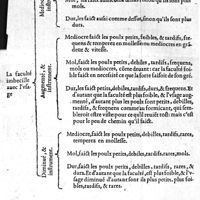 mols.
Dur, les faict aussi comme dessus, sinon qu'ils sont plus
durs.
Mediocre faict les poulx petits, foibles, & tardifs, fre-
quens & remperez en mollesse ou mediocres en gra-
dité & vitesse.
Mol, faict les poulx petits, debiles, tardifs, frequens,
mols ou mediocres, côme deuant: car la faculté foi-
ble faict en necessité ce que la forte faisoit de son gré.
Dur, les faict petits, debiles, tardifs, durs, & frequens. Et
d'autant que la faculté est plus foible, & l'vsage aug-
menté, d'autant plus les poulx sont petits, debiles,
tardifs, & frequens, comme au formicant, qui
sembleroit estre viste pour ce qu'ils vont tost: mais c'est
pour le peu de chemin qu'il faict.
La faculté
imbecille
auec l'vsa-
ge
Augmenté, &
instrument.
Mediocre, faict les poulx petits, debiles, tardifs, rares,
temperez en mollesse.
Mol, faict les poulx petits, debiles, tardifs, rares, mols.
Dur, les faict petits, debiles, tardifs, rares, &
durs. Et d'autant que la faculté, est plus foible, & l'v-
sage diminué d'autant sont ils plus petits, plus foi-
bles, tardifs, & rares.
Diminué, &
instrument.